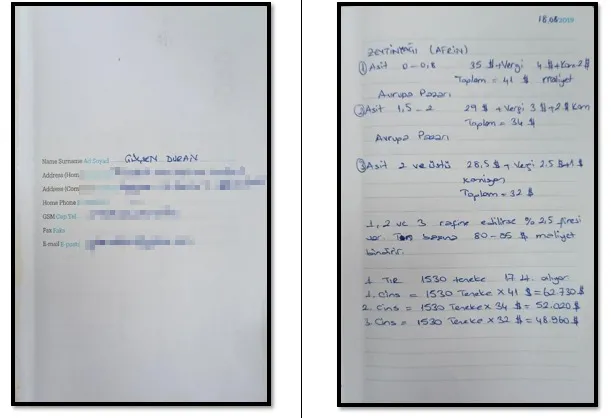 Name Surname Ad Soyad GÜLŞEN DURAN
Address (Hom
Address (Com
Home Phone
GSM Cep Tel
Fax Faks
E-mail E-posta
18.08.2019
ZEYTİNYAĞI (AFRİN)
① Asit 0-0,8 35 $ + Vergi 4 $ + Kom 2 $
Toplam = 41 $ maliyet
Avrupa Pazarı
② Asit 1,5 - 2 29 $ + Vergi 3 $ + 2 $ Kom
Toplam = 34 $
Avrupa Pazarı
③ Asit 2 ve üstü 28,5 $ + Vergi 2.5 $ + 1 $
Komisyon
Toplam = 32 $
1, 2 ve 3 rafine edilirse % 25 firesi
var. Ton başına 80-85 $ maliyet
bindirir.
1 Tır 1530 teneke 17 t. alıyor
1. Cins = 1530 Teneke x 41 $ = 62.730 $
2. Cins = 1530 Teneke x 34 $ = 52.020 $
3. Cins = 1530 Teneke x 32 $ = 48.960 $